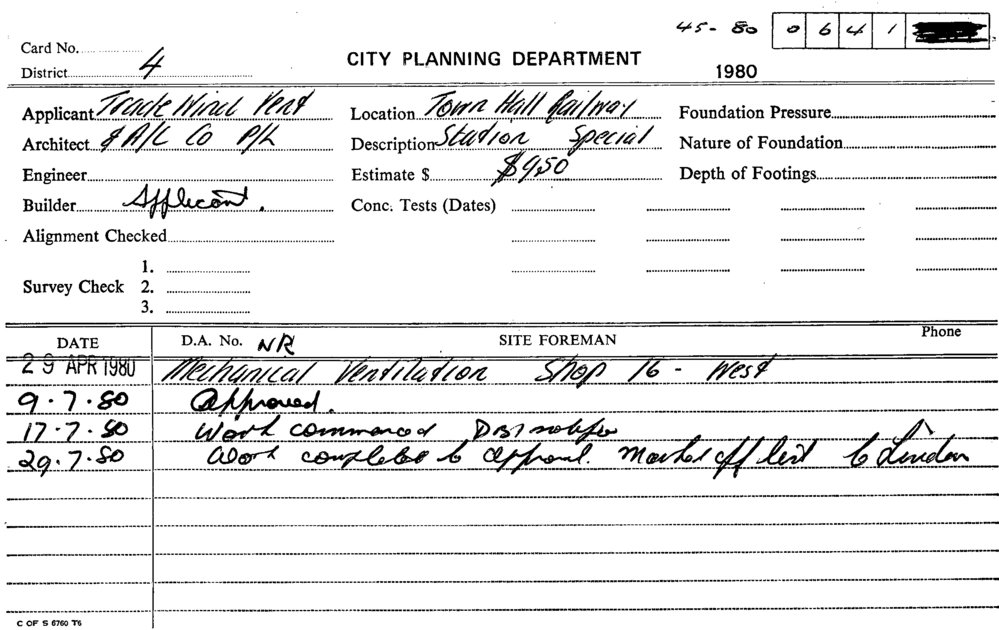 45-80 0641
Card No.
District 4
CITY PLANNING DEPARTMENT
1980
Applicant Trade Wind Vent
Location Town Hall Railway
Foundation Pressure
Architect & A/C Co P/L
Description Station Special
Nature of Foundation
Engineer
Estimate $ $950
Depth of Footings
Builder Applicant.
Conc. Tests (Dates)
Alignment Checked
1.
Survey Check 2.
3.
DATE D.A. No. NR SITE FOREMAN Phone
29 APR 1980 Mechanical Ventilation Shop 16 - West
9.7.80 Approved.
17.7.80 Work commenced
29.7.80 Work completed to approval. Marked off list
C OF S 6760 T6